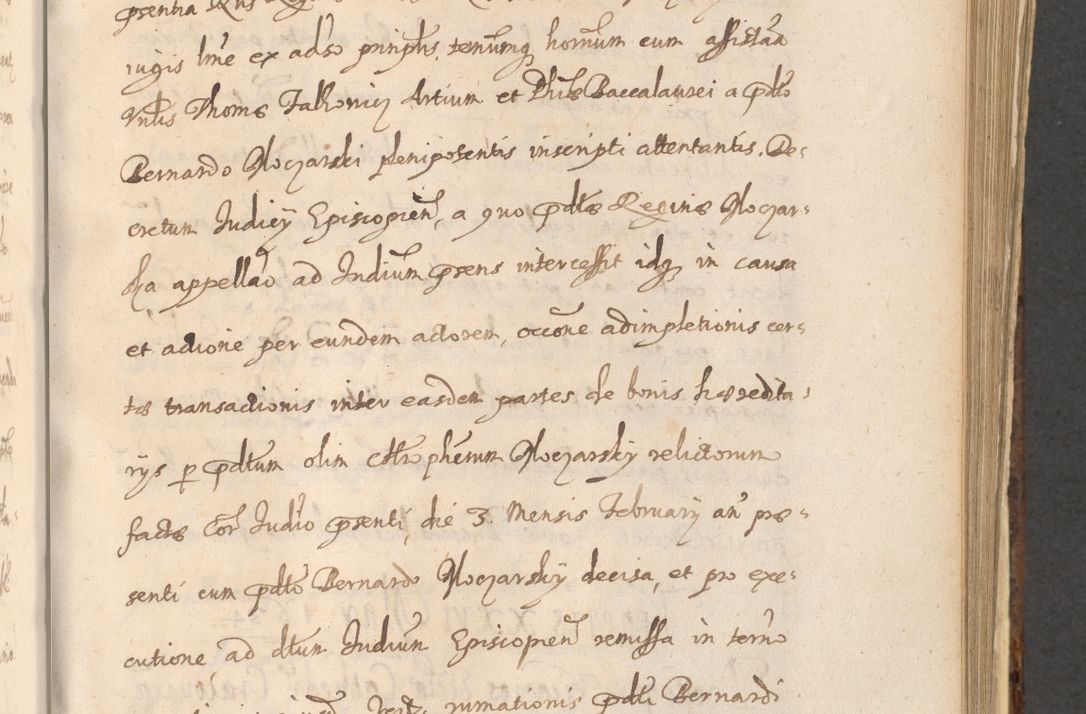 iugis lrñe ex adso prinplis, tenumq hornum cum assistãa
Vnlis Thomæ Falkovicz Artium et Philæ Baccalaurei a pdto
Bernardo Kloczarski plenipotentis inscripti attentantis. De-
cretum Judicÿ Episcopien, a quo pdtæ Reginæ Kloczar-
ska appellão ad Judium psens intercessit idq in causa
et actione per eundem actorem, occõne adimpletionis cer-
tæ transactionis inter easdem partes de bonis hæredita-
rÿs p pdtum olim Cstrophorum Kloczarsky relictorum
facta Cor Judio psenti, die 3. Mensis Februarÿ añ præ-
senti cum pdto Bernardo Kloczarsky decisa, et pro exe-
cutione ad dtum Judium Episcopien remissa in termo
pdti Bernardi